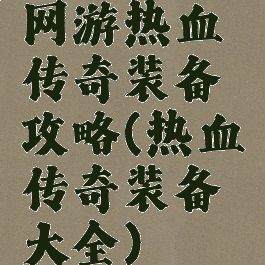 网游热血
传奇装备
攻略(热血
传奇装备
大全)